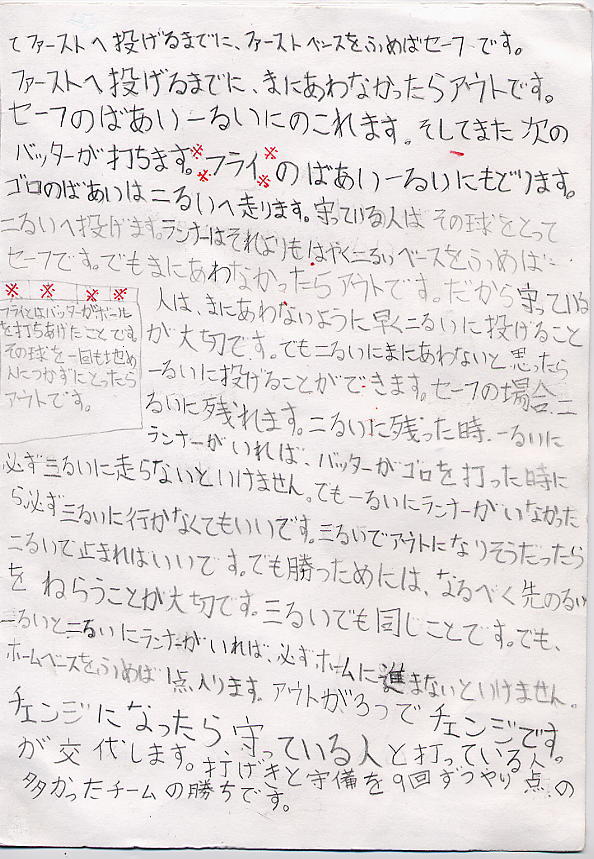 てファーストへ投げるまでに、ファーストベースをふめばセーフです。
ファーストへ投げるまでに、まにあわなかったらアウトです。
セーフのばあい一るいにのこれます。そしてまた次の
バッターが打ちます。※※フライ※※のばあい一るいにもどります。
ゴロのばあいは二るいへ走ります。守っている人はその球をとって
二るいへ投げます。ランナーはそれよりもはやく二るいベースをふめば
セーフです。でもまにあわなかったらアウトです。だから守っている
人は、まにあわないように早く二るいに投げること
が大切です。でも二るいにまにあわないと思ったら
一るいに投げることができます。セーフの場合、二
るいに残れます。二るいに残った時、一るいに
ランナーがいれば、バッターがゴロを打った時に
必ず三るいに走らないといけません。でも一るいにランナーがいなかった
ら必ず三るいに行かなくてもいいです。三るいでアウトになりそうだったら
二るいで止まればいいです。でも勝つためには、なるべく先のるい
をねらうことが大切です。三るいでも同じことです。でも、
一るいと二るいにランナーがいれば、必ずホームに進まないといけません。
ホームベースをふめば1点入ります。アウトが3つでチェンジです。
チェンジになったら、守っている人と打っている人
が交代します。打げきと守備を9回ずつやり点の
多かったチームの勝ちです。
※ ※ ※ ※
フライとはバッターがボール
を打ちあげたことです。
その球を一回も地め
人につかずにとったら
アウトです。